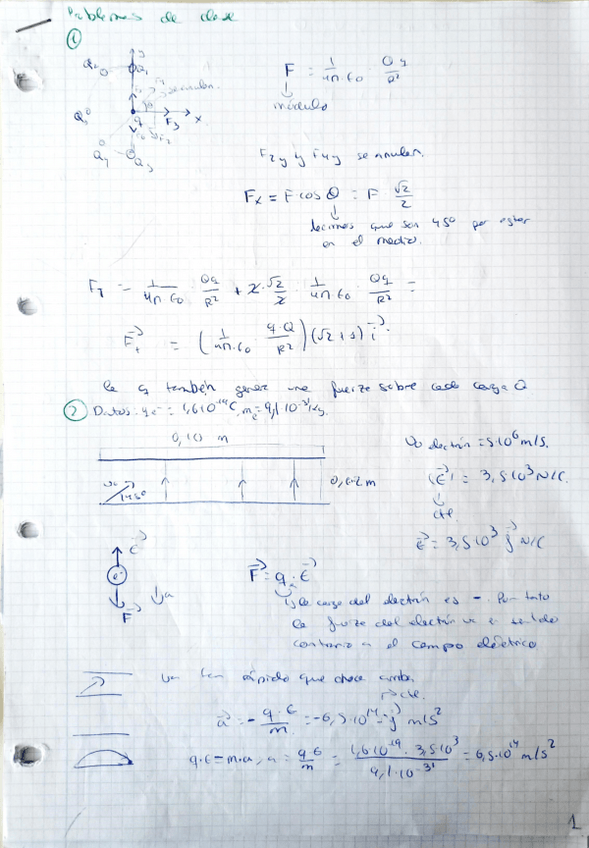 Problemas de clase
①
F = 1/4π·ε0 Qq/R²
módulo
y
Q1
se anulan.
q
F3
x
F2y y F4y se anulan.
Fx = F cos θ = F √2/2
decimos que son 45° por estar
en el medio.
FT = 1/4π·ε0 Qq/R² + 2·√2/2 · 1/4π·ε0 · Qq/R² =
Ft = (1/4π·ε0 q·Q/R²)(√2+1) i
la q también genera una fuerza sobre cada carga Q
② Datos: qe⁻ = 1,6·10⁻¹⁹C, me = 9,1·10⁻³¹kg.
0,10 m
V0 electrón = 5·10⁶ m/s.
V0
45°
0,02 m
|E| = 3,5·10³ N/C.
cte.
E = 3,5·10³ j N/C
E
e⁻
F
a
F = q·E
la carga del electrón es -. Por tanto
la fuerza del electrón va en sentido
contrario a el campo eléctrico
va tan rápido que choca arriba
cte.
a = - q·E/m = -6,5·10¹⁴ j m/s²
q·E = m·a, a = q·E/m = 1,6·10⁻¹⁹ · 3,5·10³/9,1·10⁻³¹ = 6,5·10¹⁴ m/s²
1